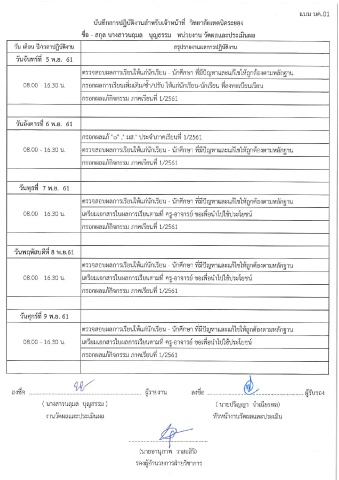 แบบ วผ.01
บันทึกการปฏิบัติงานสำหรับเจ้าหน้าที่ วิทยาลัยเทคนิคระยอง
ชื่อ - สกุล นางสาวนฤมล บุญธรรม หน่วยงาน วัดผลและประเมินผล
วัน เดือน ปีการปฏิบัติงาน สรุปรายงานผลการปฏิบัติงาน
วันจันทร์ที่ 5 พ.ย. 61
ตรวจสอบผลการเรียนให้แก่นักเรียน - นักศึกษา ที่มีปัญหาและแก้ไขให้ถูกต้องตามหลักฐาน
08.00 - 16.30 น. กรอกผลการเรียนเพิ่มเติม/ซ้ำ/ปรับ ให้แก่นักเรียน-นักเรียน ที่ลงทะเบียนเรียน
กรอกผลแก้กิจกรรม ภาคเรียนที่ 1/2561
วันอังคารที่ 6 พ.ย. 61
กรอกผลแก้ "๐" ," มส." ประจำภาคเรียนที่ 1/2561
08.00 - 16.30 น. ตรวจสอบผลการเรียนให้แก่นักเรียน - นักศึกษา ที่มีปัญหาและแก้ไขให้ถูกต้องตามหลักฐาน
กรอกผลแก้กิจกรรม ภาคเรียนที่ 1/2561
วันพุธที่ 7 พ.ย. 61
ตรวจสอบผลการเรียนให้แก่นักเรียน - นักศึกษา ที่มีปัญหาและแก้ไขให้ถูกต้องตามหลักฐาน
08.00 - 16.30 น. เตรียมเอกสารใบผลการเรียนตามที่ ครู-อาจารย์ ขอเพื่อนำไปใช้ประโยชน์
กรอกผลแก้กิจกรรม ภาคเรียนที่ 1/2561
วันพฤหัสบดีที่ 8 พ.ย.61
ตรวจสอบผลการเรียนให้แก่นักเรียน - นักศึกษา ที่มีปัญหาและแก้ไขให้ถูกต้องตามหลักฐาน
08.00 - 16.30 น. เตรียมเอกสารใบผลการเรียนตามที่ ครู-อาจารย์ ขอเพื่อนำไปใช้ประโยชน์
กรอกผลแก้กิจกรรม ภาคเรียนที่ 1/2561
วันศุกร์ที่ 9 พ.ย. 61
ตรวจสอบผลการเรียนให้แก่นักเรียน - นักศึกษา ที่มีปัญหาและแก้ไขให้ถูกต้องตามหลักฐาน
08.00 - 16.30 น. เตรียมเอกสารใบผลการเรียนตามที่ ครู-อาจารย์ ขอเพื่อนำไปใช้ประโยชน์
กรอกผลแก้กิจกรรม ภาคเรียนที่ 1/2561
ลงชื่อ ผู้รายงาน ลงชื่อ ผู้รับรอง
( นางสาวนฤมล บุญธรรม ) ( นายปริญญา )
งานวัดผลและประเมินผล หัวหน้างานวัดผลและประเมินผล
(นายอานุภาพ วาสะสิริ)
รองผู้อำนวยการฝ่ายวิชาการ